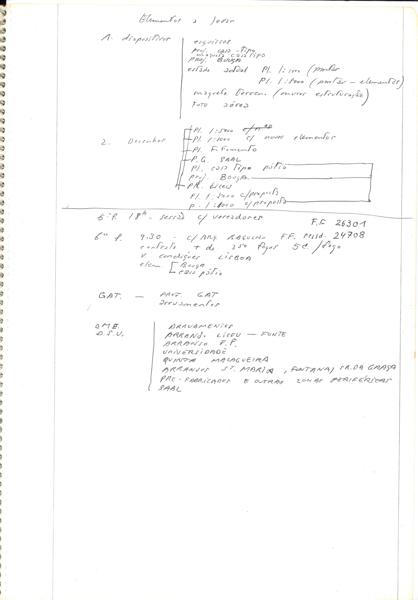 Elementos a levar
1. diapositivos
esquissos
proj. casa-tipo
maqueta casa tipo
proj. Bouça
estado actual Pl. 1:1000 (pontar
Pl. 1:5000 (pontar - elementos)
maqueta terreno (envios estruturação)
foto aérea
2. Desenhos
Pl. 1:5000
Pl. 1:1000 c/ novos elementos
Pl. F. Fomento
P.G. SAAL
Pl. casa tipo pátio
proj. Bouça
Pl. Liceu
Pl. 1:5000 c/proposta
p. 1:1000 c/proposta
5ª f. 18h. sessão c/ vereadores
F.F 26301
6ª f. 9.30 - c/ Arq. F.F. 24708
contrato + de 250 fogos 5c /fogo
V condições LISBOA
elem [Bouça
casa pátio
GAT. — PROT. GAT
arruamentos
D.S.U.
ARRUAMENTOS
ARRANJO LICEU — FONTE
ARRANJO F.F.
UNIVERSIDADE
QUINTA MALAGUEIRA
ARRANJOS STª MARIA, FONTANAS, SR. DA GRAÇA
PRE-FABRICADOS E OUTRAS ZONAS PERIFÉRICAS
SAAL